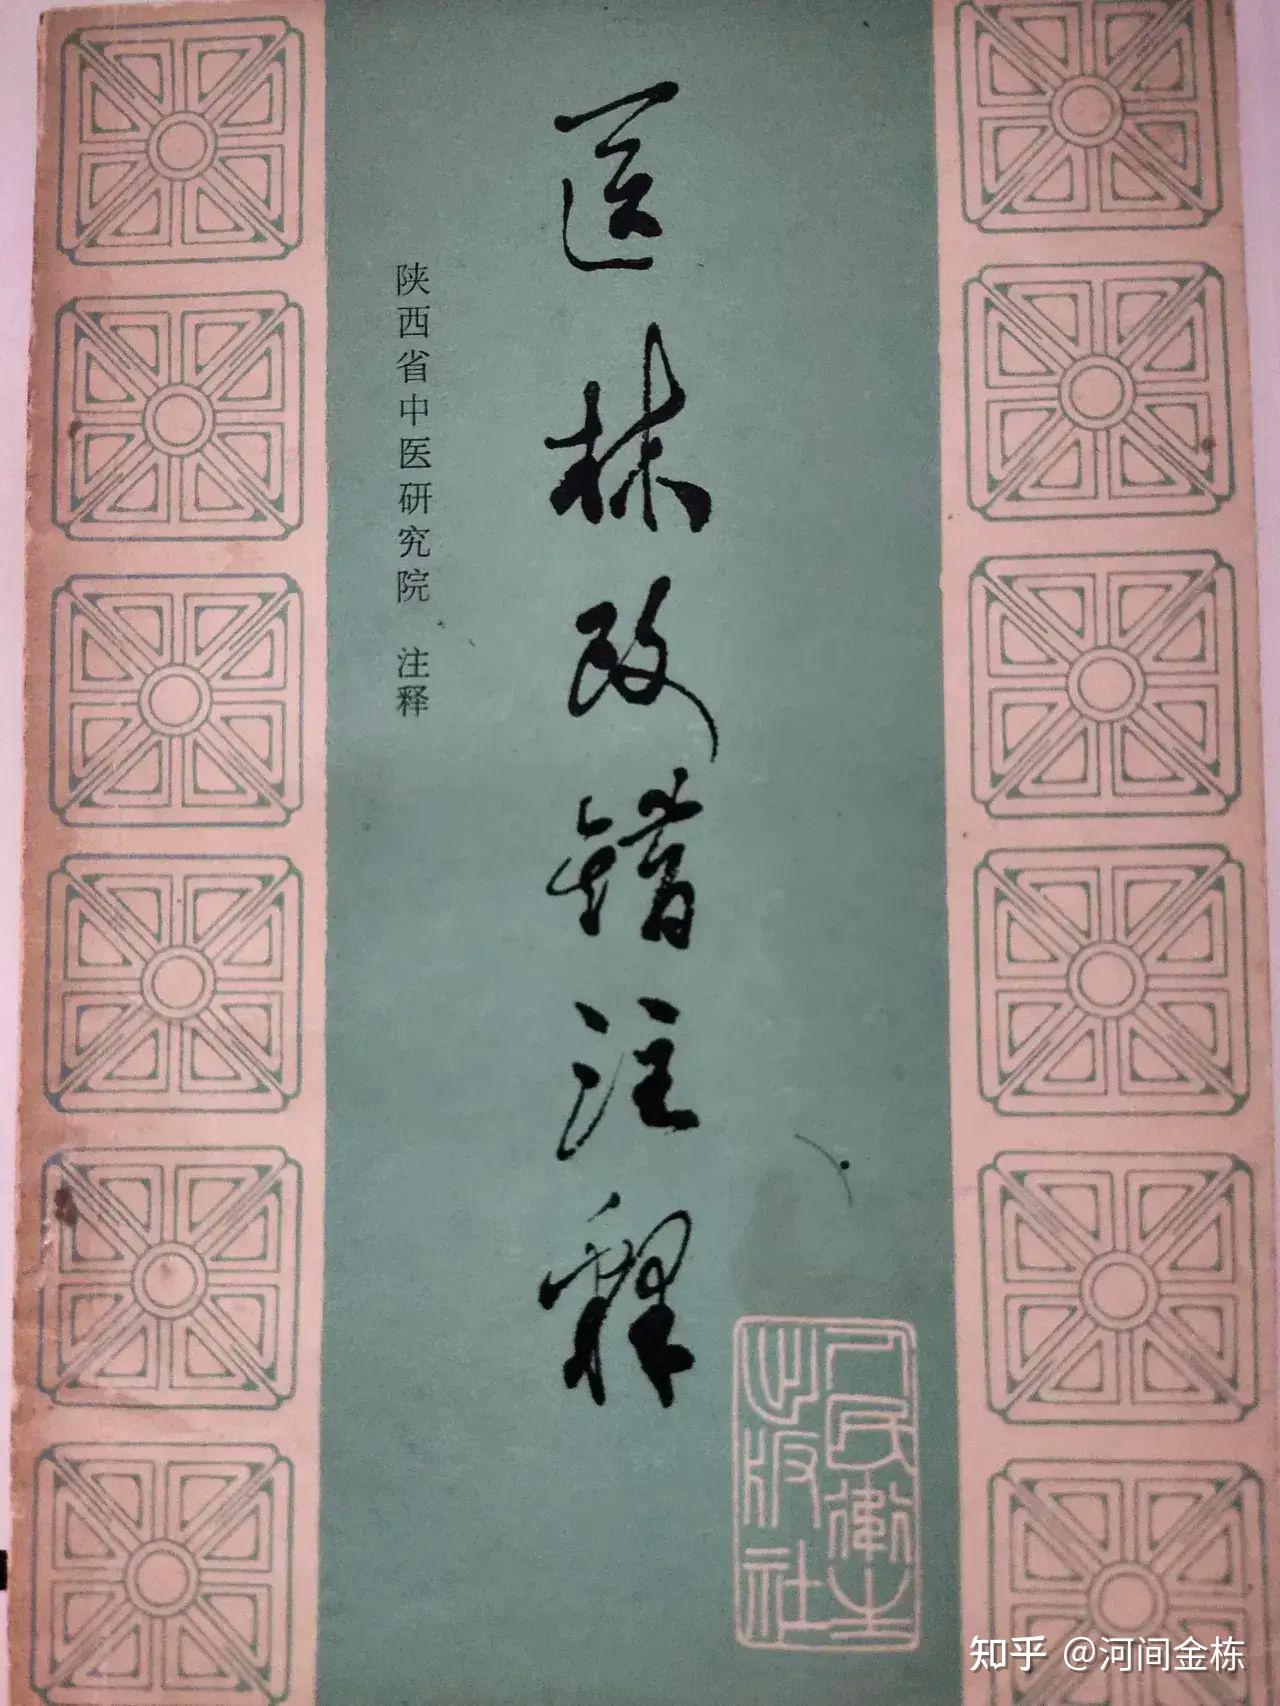 医林改错注释
陕西省中医研究院 注释
人民卫生
出版社
知乎 @河间金栋